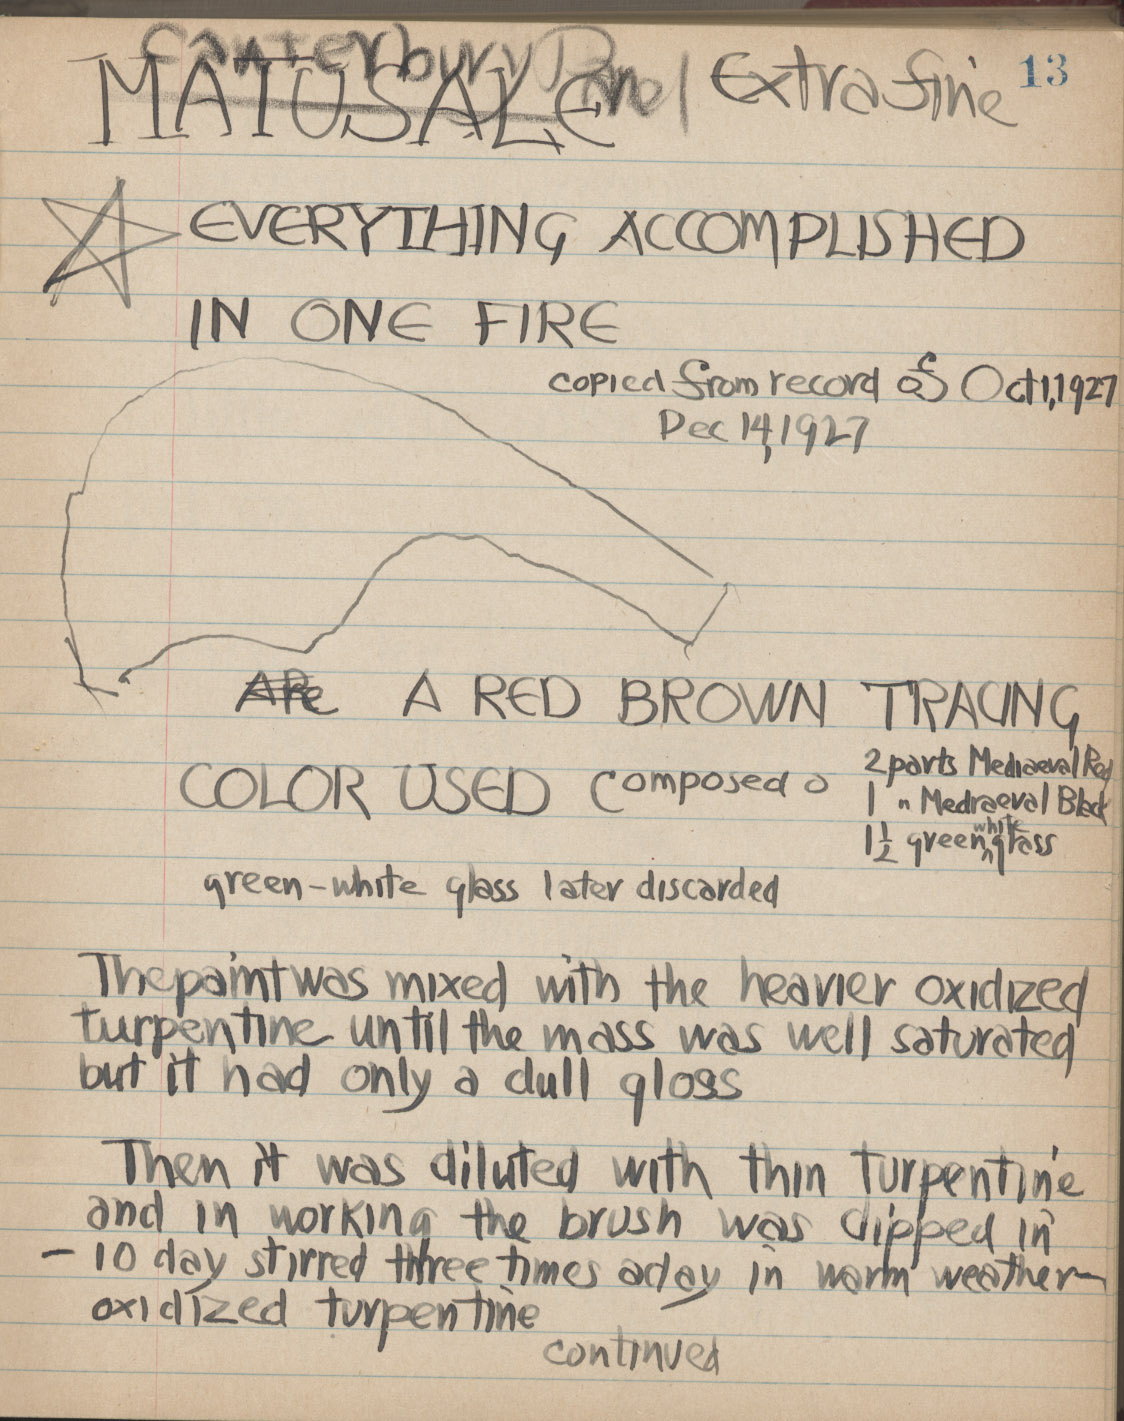 Canterbury Panel Extra fine 13
MATUSALE
EVERYTHING ACCOMPLISHED
IN ONE FIRE
copied from record of Oct 1, 1927
Dec 14, 1927
Are A RED BROWN TRACING
COLOR USED Composed o
2 parts Mediaeval Red
1 " Mediaeval Black
1 1/2 green white glass
green-white glass later discarded
The paint was mixed with the heavier oxidized
turpentine until the mass was well saturated
but it had only a dull gloss
Then it was diluted with thin turpentine
and in working the brush was dipped in
– 10 day stirred three times a day in warm weather –
oxidized turpentine
continued